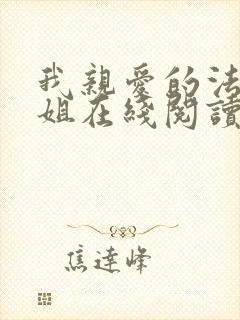 我親愛的法
姐在綫閱讀
焦達峰